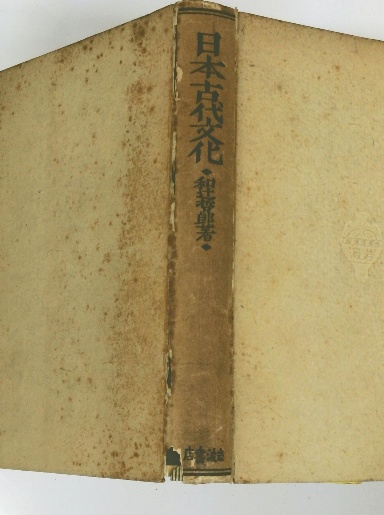 日本古代文化
•和辻哲郎著•
岩波書店